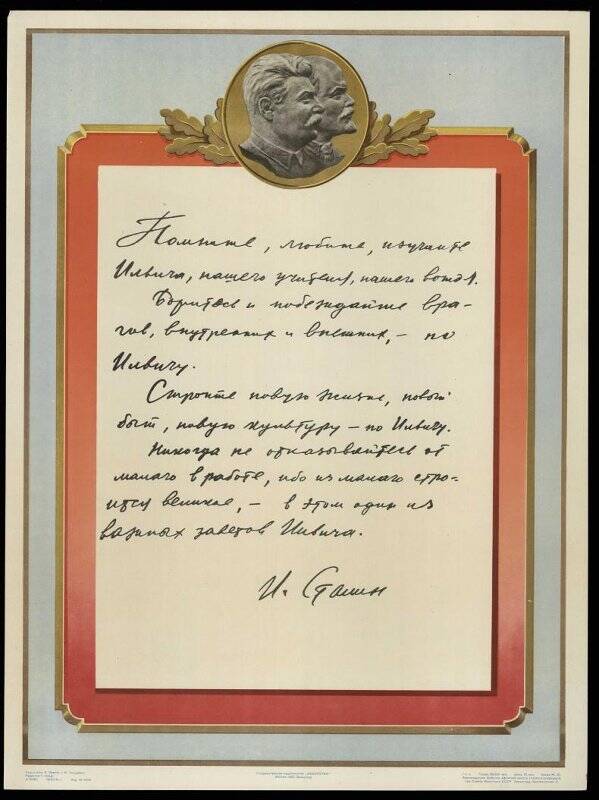 Помните, любите, изучайте
Ильича, нашего учителя, нашего вождя.
Боритесь и побеждайте вра-
гов, внутренних и внешних, – по
Ильичу.
Стройте новую жизнь, новый
быт, новую культуру – по Ильичу.
Никогда не отказывайтесь от
малого в работе, ибо из малого стро-
ится великое, – в этом один из
важных заветов Ильича.
И. Сталин